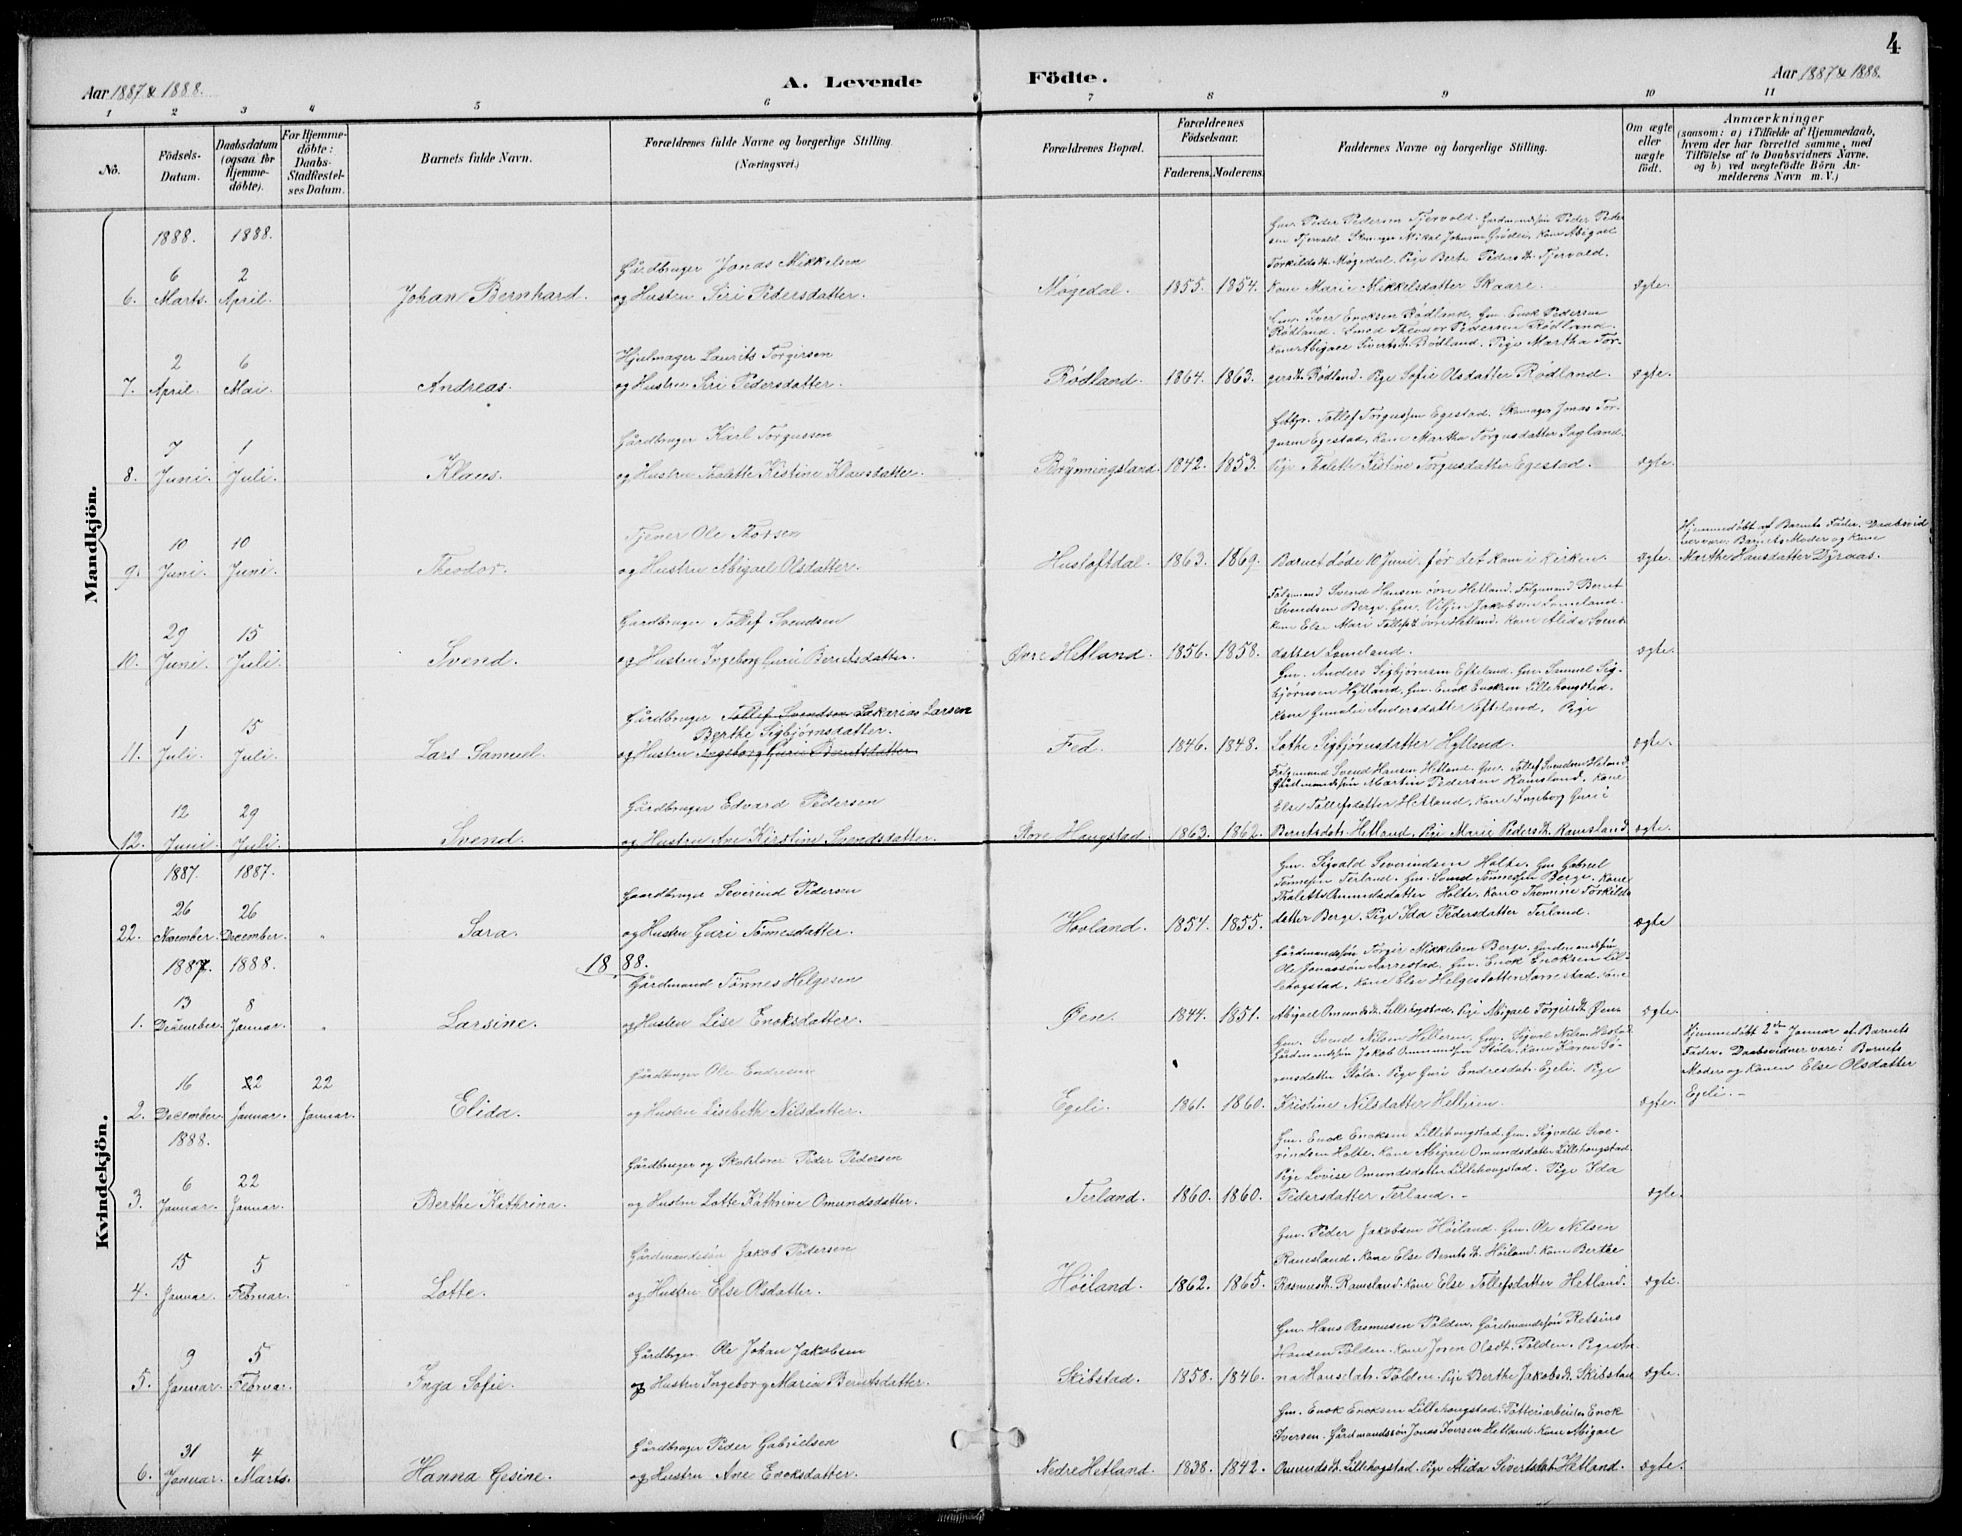 4
Aar 1887 & 1888.
A. Levende
Födte.
Aar 1887 & 1888.
1 2 3 4 5 6 7 8 9 10 11
No.
Födsels-Datum.
Daabsdatum (ogsaa for Hjemme-döbte).
For Hjemme-döbte: Daabs-Stadfæstel-ses Datum.
Barnets fulde Navn.
Forældrenes fulde Navne og borgerlige Stilling (Næringsvei.)
Forældrenes Bopæl.
Forældrenes Födselsaar.
Faderens. Moderens.
Faddernes Navne og borgerlige Stilling.
Om ægte eller uægte födt.
Anmærkninger
(saasom: a) i Tilfælde af Hjemmedaab,
hvem der har forrettet samme, med
Tilföielse af to Daabsvidners Navne,
og b) ved uægtefödte Börn An-
melderens Navn m. V.)
Mandkjön.
1888. 1888.
6. 6 Marts. 2 April. Johan Bernhard.
Gårdbruger Jonas Mikkelsen
og Hustru Siri Pedersdatter.
Møgedal. 1855. 1854.
Gm. Peder Pedersen Tjervold. Gardmandssøn Peder Peder
sen Tjervold. Skomager Mikal Johnsen Grøder, Kone Abigael
Torkildsdt. Møgedal. Pige Berte Pedersdt. Tjervold.
Kone Marie Mikkelsdatter Skaare.
ægte.
7. 2 April. 6 Mai. Andreas.
Hjulmager Laurits Torgersen
og Hustru Siri Pedersdatter.
Rødland. 1864. 1863.
Gm. Iver Enoksen Rødland, Gm. Enok Pedersen
Rødland. Smed Theodor Pedersen Rødland.
Kone Abigael Sivertsdt. Rødland. Pige Martha Tor-
gersdt. Rødland. Pige Sofie Olsdatter Rødland.
ægte.
8. 7 Juni. 1 Juli. Klaus.
Gårdbruger Karl Torgussen
og Hustru Thalette Kistine Klausdatter.
Brynningsland. 1842. 1853.
Tollef Torgussen Egestad. Skomager Jonas Tor-
gusen Egestad, Kone Martha Torgusdatter Sagland.
Pige Talette Kistine Torgusdatter Egestad.
ægte.
9. 10 Juni. 10 Juni. Theodor.
Tjener Ole Thorsen
og Hustru Abigael Olsdatter.
Hustoftdal. 1863. 1869.
Barnet døde 10 Juni. før det kom i Kirken.
ægte.
Hjemmedøbt af Barnets Fader. Daabsvid
ner vare: Barnets Moder og Kone
Marthe Hansdatter Dyraas.
10. 29 Juni. 15 Juli. Svend.
Gårdbruger Tollef Svendsen
og Hustru Ingeborg Guri Berntsdatter.
Øvre Hetland. 1856. 1858.
Følgemand Svend Hansen øvre Hetland. Følgemand Bernt
Svendsen Berge. Gm. Jakobsen Lomeland.
Kone Else Mari Tollefsdt. øvre Hetland. Kone Alida Svend-
datter Lomeland.
ægte.
11. 1 Juli. 15 Juli. Lars Samuel.
Gårdbruger Tollef Svendsen Sakarias Larsen
Berthe Sigbjørnsdatter.
og Hustru Ingeborg Guri Berntsdatter
Fed. 1846. 1848.
Gm. Anders Sigbjørnsen Efteland. Gm. Samuel Sig-
bjørnsen Hytland, Gm. Enok Enoksen Lillehougstad.
Kone Gunelie Andersdatter Efteland. Pige
Lothe Sigbjørnsdatter Hytland.
ægte.
12. 12 Juni. 29 Juli. Svend.
Gårdbruger Edvard Pedersen
og Hustru Ane Kirstine Svendsdatter.
Store Hougstad. 1863. 1862.
Følgemand Svend Hansen Hetland. Gm. Tollef Svendsen Hetland
Gårdmandssøn Martin Pedersen Ramsland. Kone
Else Tollefsdatter Hetland. Kone Ingeborg Guri
Berntsdatr. Hetland. Pige Marie Pedersdt. Ramsland
ægte.
Kvindekjön.
1887. 1887.
22. 26 November. 26 December. " Sara.
Gaardbruger Severind Pedersen
og Hustru Guri Tønnesdatter.
Hovland. 1854. 1855.
Gm. Sigvald Severindsen Holte. Gm Gabriel
Tønnesen Terland. Gm. Svend Tønnesen Berge. Kone
Thalette Omundsdatter Holte. Kone Thomine Torkilds
datter Berge. Pige Ida Pedersdatter Terland.
ægte
1887. 1888.
1888.
1. 13 December. 8 Januar. " Larsine.
Gårdmand Tønnes Helgesen
og Hustru Lise Enoksdatter.
Øen. 1844. 1851.
Gårdmandssøn Torgir Mikkelsen Berge. Gardmandssøn
Ole Jonassøn Aarrestad, Gm. Enok Enoksen Lil-
lehogstad. Kone Else Helgesdatter Aarrestad. Kone
Abigael Omundsdt. Lillehogstad. Pige Abigael Torgersdt. Øen.
ægte.
2. 16 December. 22 Januar. 22 Januar. Elida.
Gårdbruger Ole Endresen
og Hustru Lisebeth Nilsdatter.
Egeli. 1861. 1860.
Gm. Svend Nilsen Helleren. Gm. Sigvel Nilsen
Gårdmandssøn Jakob Omundsen Støla. Kone Karen Sø-
rensdatter Støla. Pige Guri Endresdatr. Egeli. Pige
Kristine Nilsdatter Helleren.
ægte.
Hjemmedøbt 2den Januar af Barnets
Fader. Daabsvidner vare: Barnets
Moder og Konen Else Olsdatter
Egeli. -
1888.
3. 6 Januar. 22 Januar. Berthe Kathrina.
Gårdbruger og Skolelærer Peder Pedersen
og Hustru Lotte Kathrine Omundsdatter.
Terland. 1860. 1860.
Gm. Enok Enoksen Lillehougstad. Gm. Sigvald Seve-
rindsen Holte. Kone Abigael Omundsdatter Lillehougstad.
Pige Lovise Omundsdatter Lillehougstad. Pige Ida
Pedersdatter Terland. -
ægte.
4. 15 Januar. 5 Februar. Lotte.
Gårdmandssøn Jakob Pedersen
og Hustru Else Olsdatter.
Høiland. 1862. 1865.
Gm. Peder Jakobsen Høiland. Gm. Ole Nilsen
Ramsland. Kone Else Berntsdt. Høiland. Kone Berthe
Rasmusdt. Ramsland. Kone Else Tollefsdatter Hetland.
ægte.
5. 9 Januar. 5 Februar. Inga Sofie.
Gårdbruger Ole Johan Jakobsen
og Hustru Ingeborg Maria Berntsdatter.
Skibstad. 1858. 1846.
Gm. Hans Rasmussen Polden. Gårdmandssøn Retsius
Hansen Polden. Kone Joren Olsdt. Polden. Pige An-
na Hansdatr. Polden. Pige Berthe Jakobsdt. Skibstad
ægte.
6. 31 Januar. 4 Marts. Hanna Gesine.
Gårdbruger Peder Gabrielsen
og Hustru Ane Enoksdatter.
Nedre Hetland. 1838. 1842.
Gm. Enok Enoksen Lillehougstad. Potteriarbeider Enok
Iversen. Gårdmandssøn Jonas Iversen Hetland. Kone Abigael
Omundsdt. Lillehogstad. Pige Alida Sivertsdatr Hetland.
ægte.